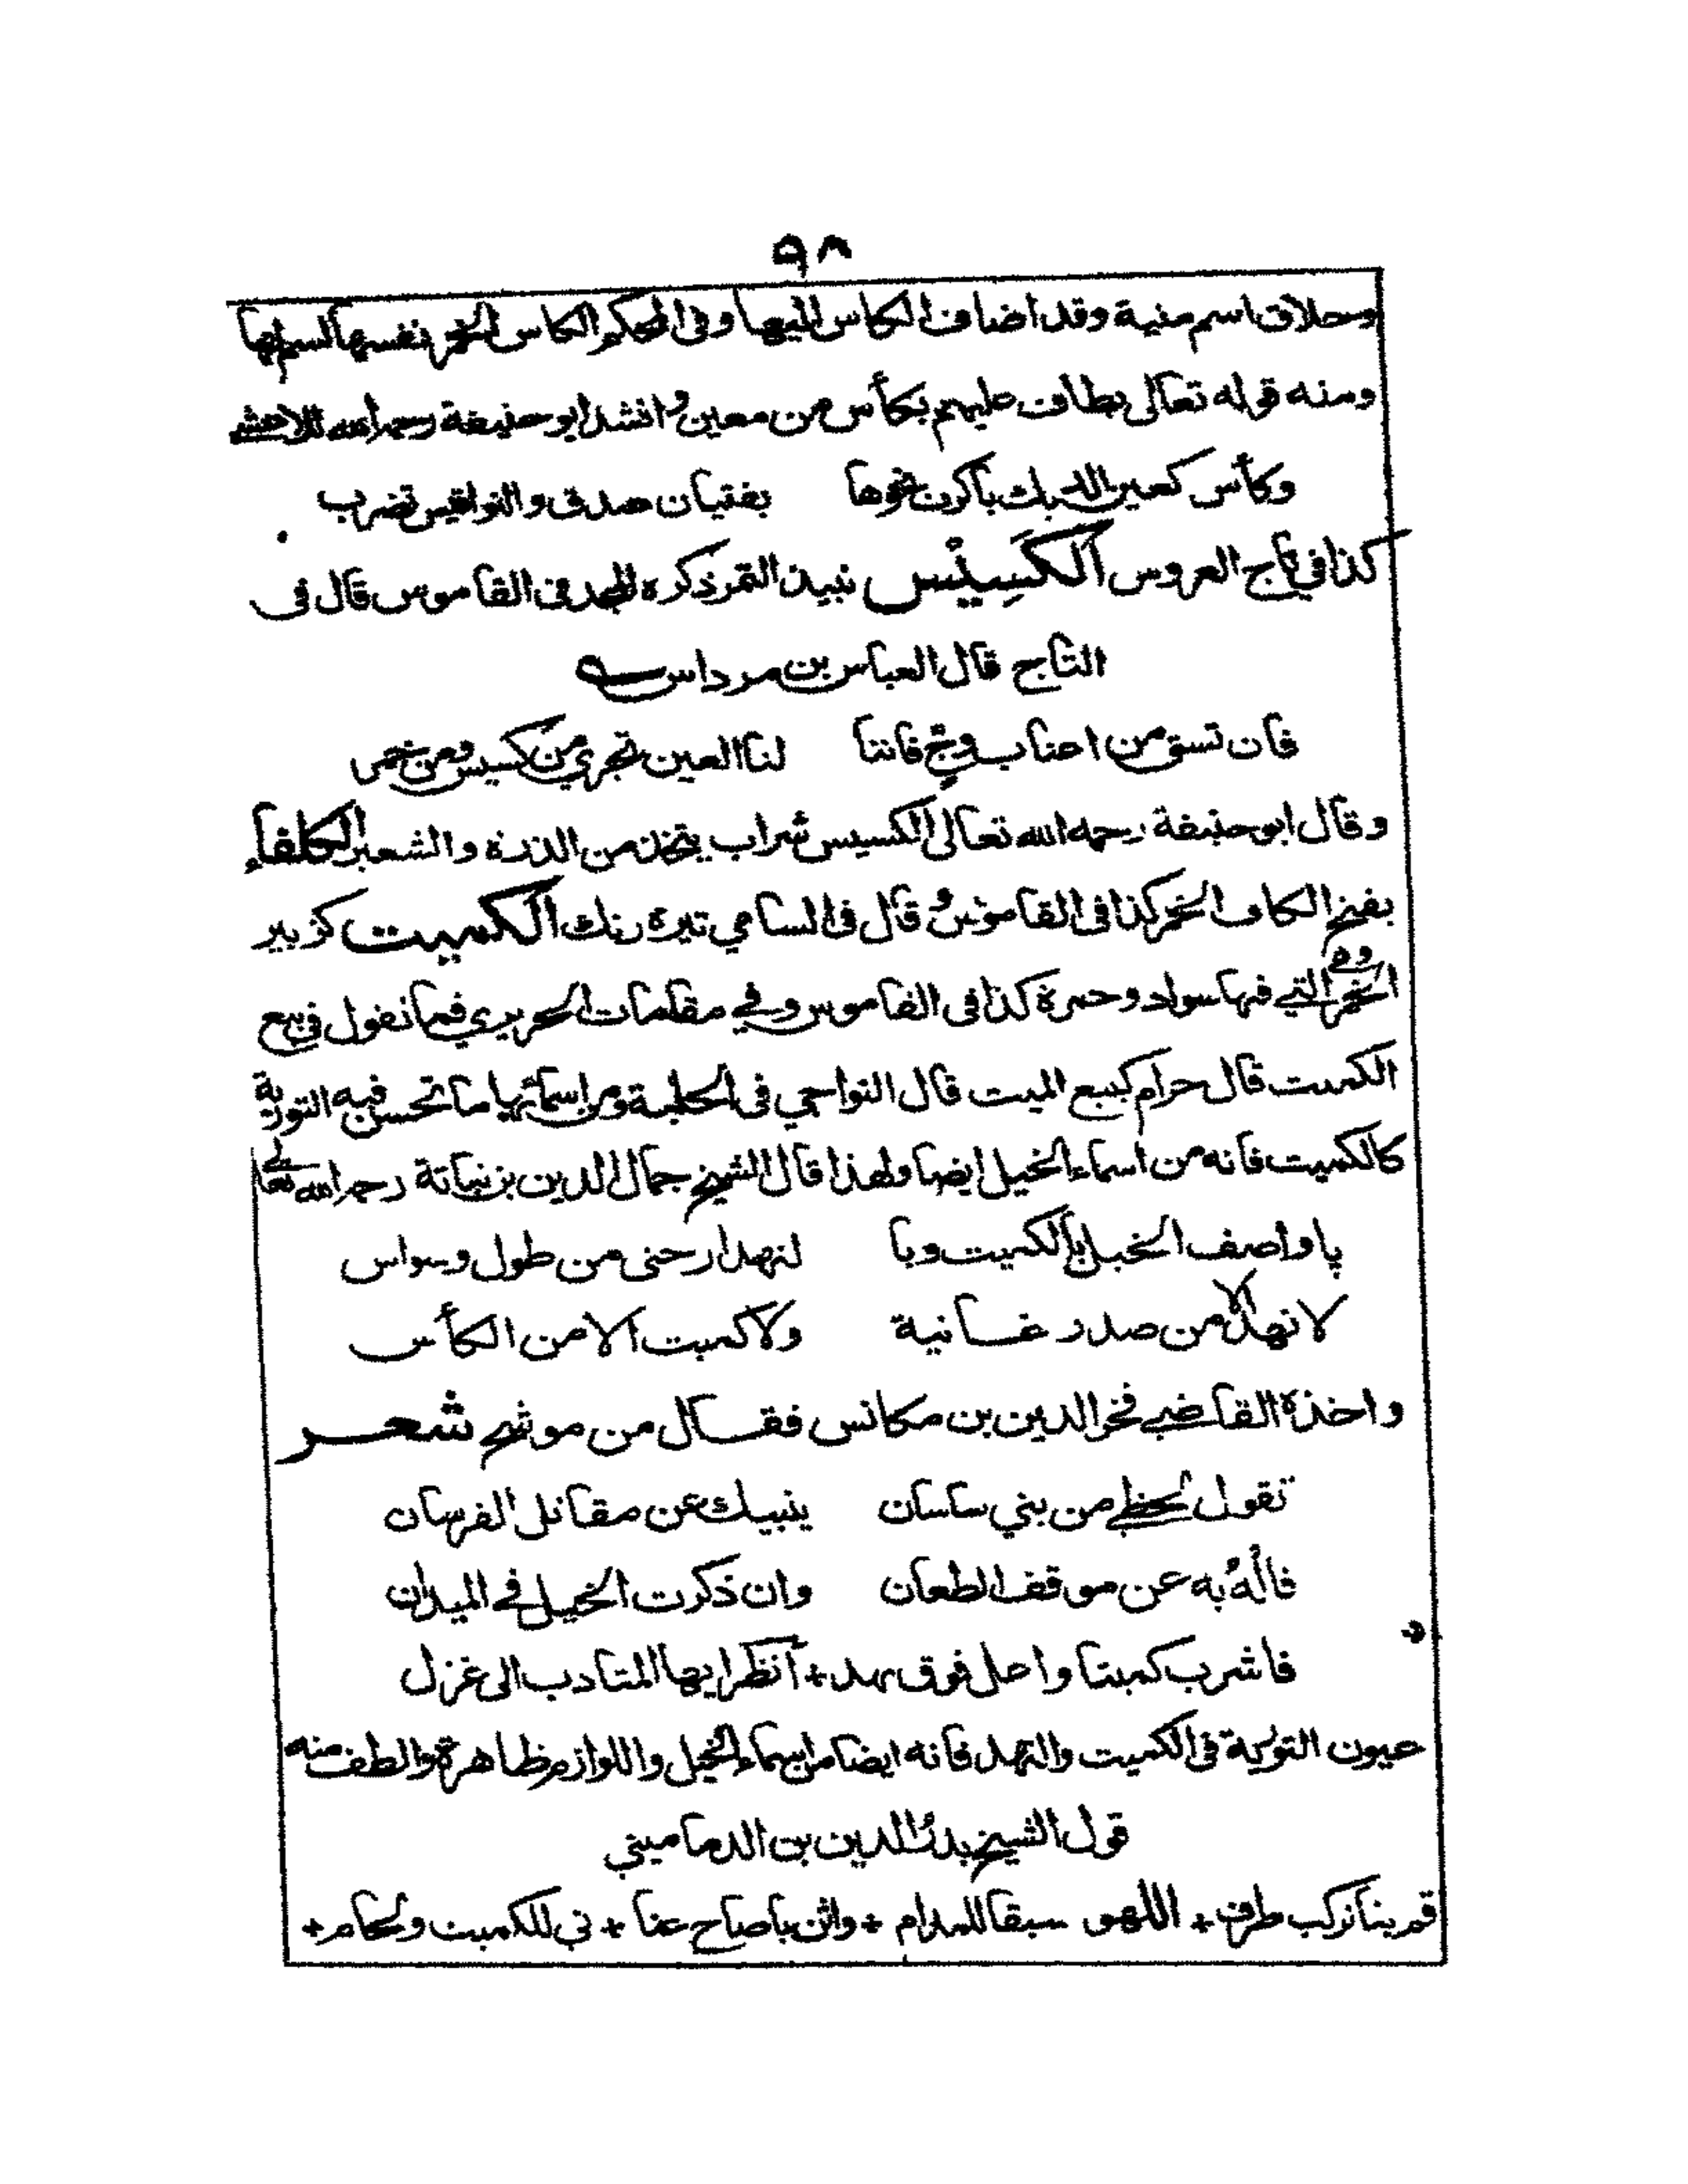 ٩٨
وحلاق اسم منية وقد اضاف الكاس اليها وفى المحكم الكاس الخمر نفسها اسم لها
ومنه قوله تعالى يطاف عليهم بكأس من معين وانشد ابو حنيفة رحمه الله للاعشى
وكأس كعين الديك باكرت نحوها بفتيان صدق والنواقيس تضرب
كذا في تاج العروس اَلكَسِيْس نبيذ التمر ذكره المجد فى القاموس قال فى
التاج قال العباس بن مرداس
فان تسق من اعناب وجٍّ فاننا لنا العين تجري من كسيس ومن خمر
وقال ابو حنيفة رحمه الله تعالى الكسيس شراب يتخذ من الذرة والشعير الكلفاء
بفتح الكاف الخمر كذا فى القاموس وقال فى السامي تيره رنك الكميت كزبير
الخمر التي فيها سواد وحمرة كذا فى القاموس وفي مقامات الحريري فما تقول في بيع
الكميت قال حرام كبيع الميت قال النواجي فى الحلبة ومن اسمائها ما تحسن فيه التورية
كالكميت فانه من اسماء الخيل ايضا ولهذا قال الشيخ جمال الدين بن نباتة رحمه الله تعالى
يا واصف الخيل بالكميت وبا لنهد ارحنى من طول وسواس
لا نهد الا من صدر غانية ولا كميت الا من الكأس
واخذه القاضي فخر الدين بن مكانس فقال من موشح شعر
تقول لحظي من بني ساسان ينبيك عن مقاتل الفرسان
فالْهُ به عن موقف الطعان وان ذكرت الخيل في الميدان
فاشرب كميتا واعل فوق نهد + انظر ايها المتادب الى غزل
عيون التورية فى الكميت والنهد فانه ايضا من اسماء الخيل واللوازم ظاهرة والطف منه
قول الشيخ بدر الدين بن الدماميني
قم بنا نركب طرف + اللهو سبقا للمدام + واثن يا صاح عنا + ني للكميت ولجام +